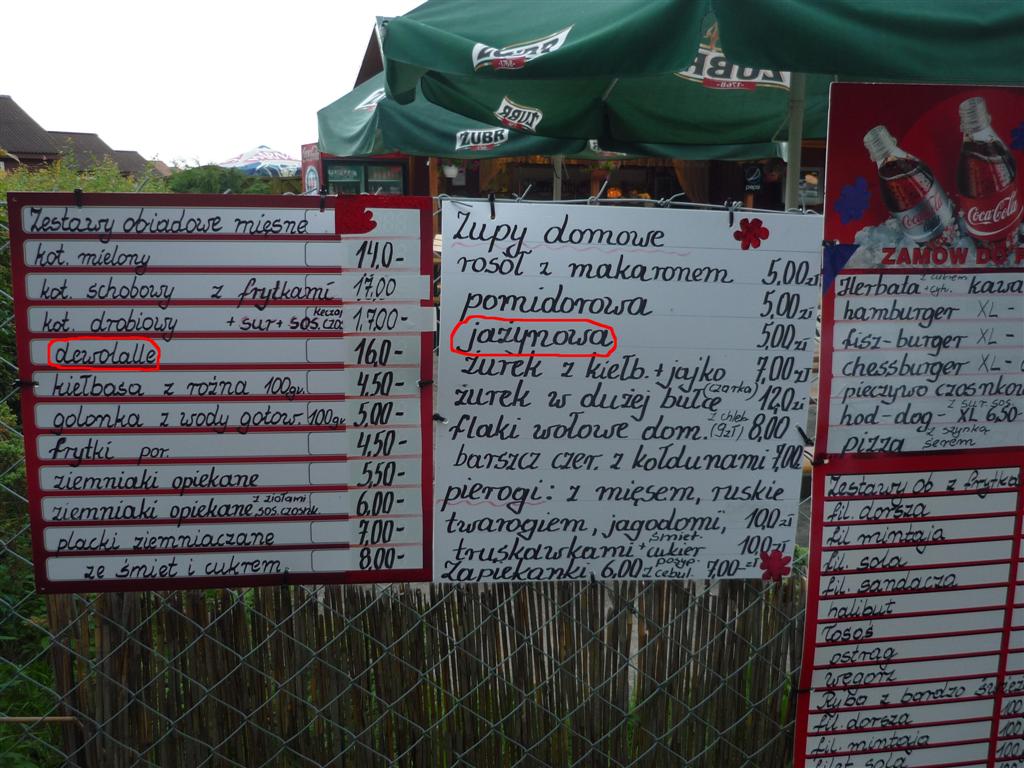 ŻUBR
ŻUBR
1768
ŻUBR
ŻUBR
pepsi
Zestawy obiadowe mięsne
kot. mielony 14,0-
kot. schobowy z frytkami 17,00
kot. drobiowy + sur + sos. 17,00-
dewolalle 16,0-
kiełbasa z rożna 100gr. 4,50-
golonka z wody gotow. 100gr 5,00-
frytki por. 4,50-
ziemniaki opiekane 5,50-
ziemniaki opiekane z ziołami sos. czosnk. 6,00-
placki ziemniaczane 7,00-
ze śmiet i cukrem 8,00-
Zupy domowe
rosół z makaronem 5,00zł
pomidorowa 5,00zł
jażynowa 5,00zł
żurek z kiełb. + jajko 7,00zł
żurek w dużej bułce (czarka) 12,0zł
flaki wołowe dom. z chleb (9zł) 8,00
barszcz czer. z kołdunami 7,00
pierogi: z mięsem, ruskie
twarogiem, jagodomi, 10,0zł
truskawkami + śmiet cukier 10,0zł
Zapiekanki 6,00zł 7,00-zł
Coca-Cola
Coca-Cola
ZAMÓW DO
Herbata z cukiem + cytr. kawa
hamburger XL -
fisz-burger XL -
chessburger XL -
pieczywo czosnkow
hod-dog - z sur sos. XL 6,50
pizza z szynką serem
Zestawy ob z frytka
fil. dorsza
fil. mintaja
fil. sola
fil. sandacza
halibut
łosoś
pstrąg
węgorz
Ryba z bardzo śwież
fil. dorsza 100
fil. mintaja 100
filet sola 100